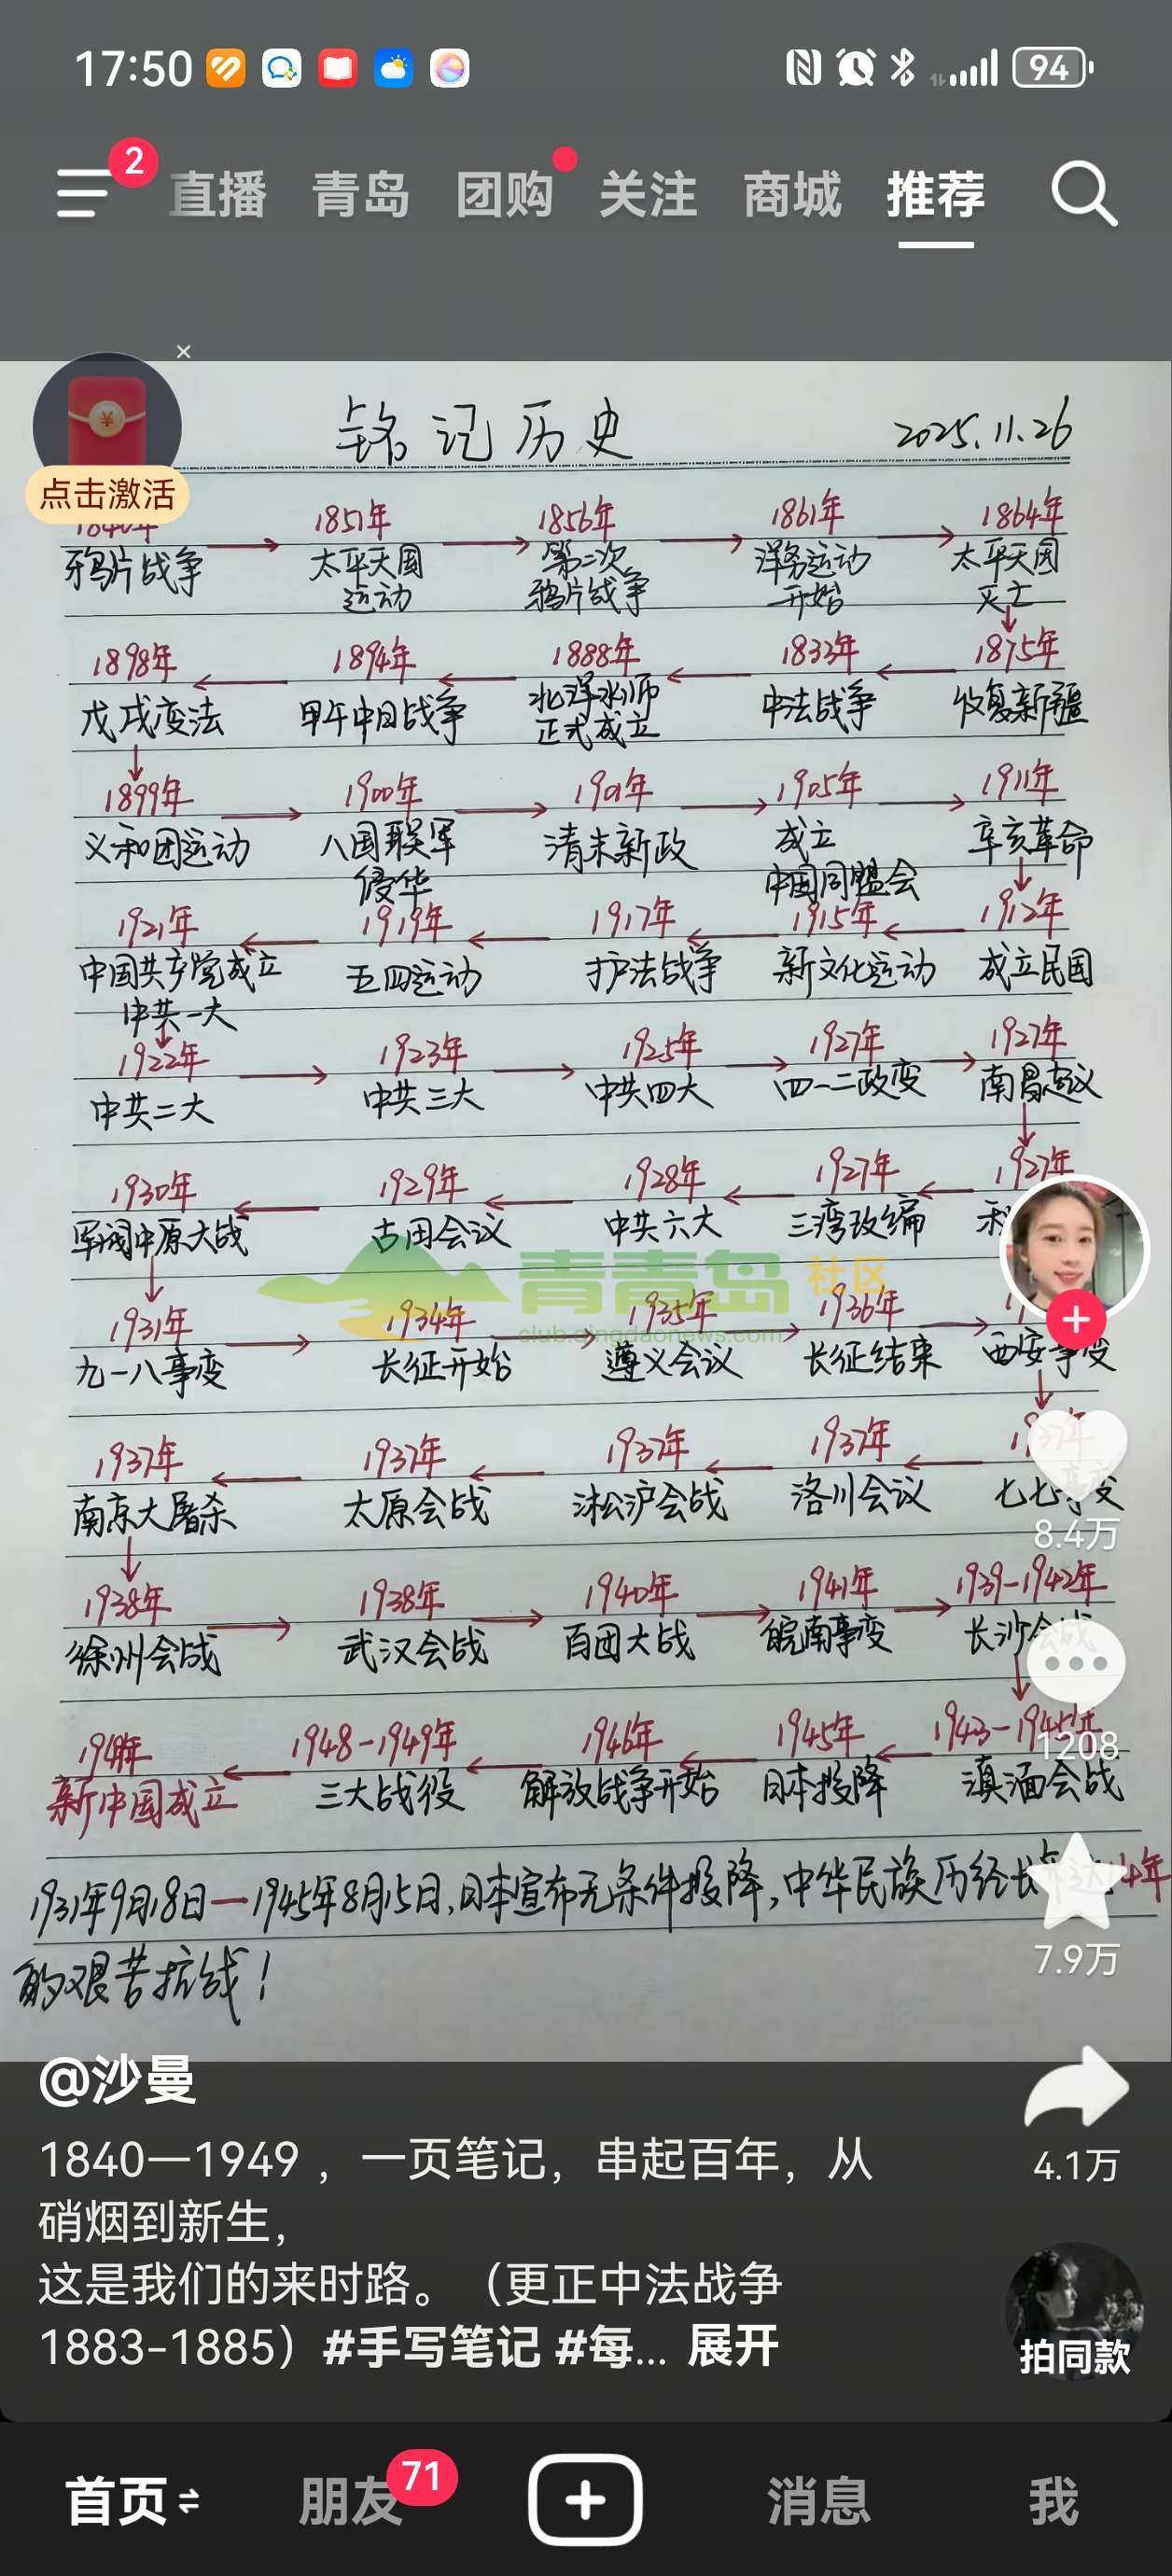 17:50
94
2
直播 青岛 团购 关注 商城 推荐
点击激活
铭记历史
2025.11.26
1840年 1851年 1856年 1861年 1864年
鸦片战争 太平天国运动 第二次鸦片战争 洋务运动开始 太平天国灭亡
1898年 1894年 1888年 1833年 1875年
戊戌变法 甲午中日战争 北洋水师正式成立 中法战争 收复新疆
1899年 1900年 1901年 1905年 1911年
义和团运动 八国联军侵华 清末新政 成立中国同盟会 辛亥革命
1921年 1919年 1917年 1915年 1912年
中国共产党成立中共一大 五四运动 护法战争 新文化运动 成立民国
1922年 1923年 1925年 1927年 1927年
中共二大 中共三大 中共四大 四一二政变 南昌起义
1930年 1929年 1928年 1927年 1927年
军阀中原大战 古田会议 中共六大 三湾改编
青青岛社区
club.qingdaonews.com
1931年 1934年 1935年 1936年
九一八事变 长征开始 遵义会议 长征结束 西安事变
1937年 1937年 1937年 1937年 1937年
南京大屠杀 太原会战 淞沪会战 洛川会议 七七事变
8.4万
1938年 1938年 1940年 1941年 1939-1942年
徐州会战 武汉会战 百团大战 皖南事变 长沙会战
1949年 1948-1949年 1946年 1945年 1943-1945年
1208
新中国成立 三大战役 解放战争开始 日本投降 滇缅会战
1931年9月18日一1945年8月15日,日本宣布无条件投降,中华民族历经长达14年
的艰苦抗战!
7.9万
@沙曼
1840—1949 ，一页笔记，串起百年，从
硝烟到新生，
这是我们的来时路。（更正中法战争
1883-1885）#手写笔记 #每... 展开
4.1万
拍同款
首页 朋友 71 消息 我